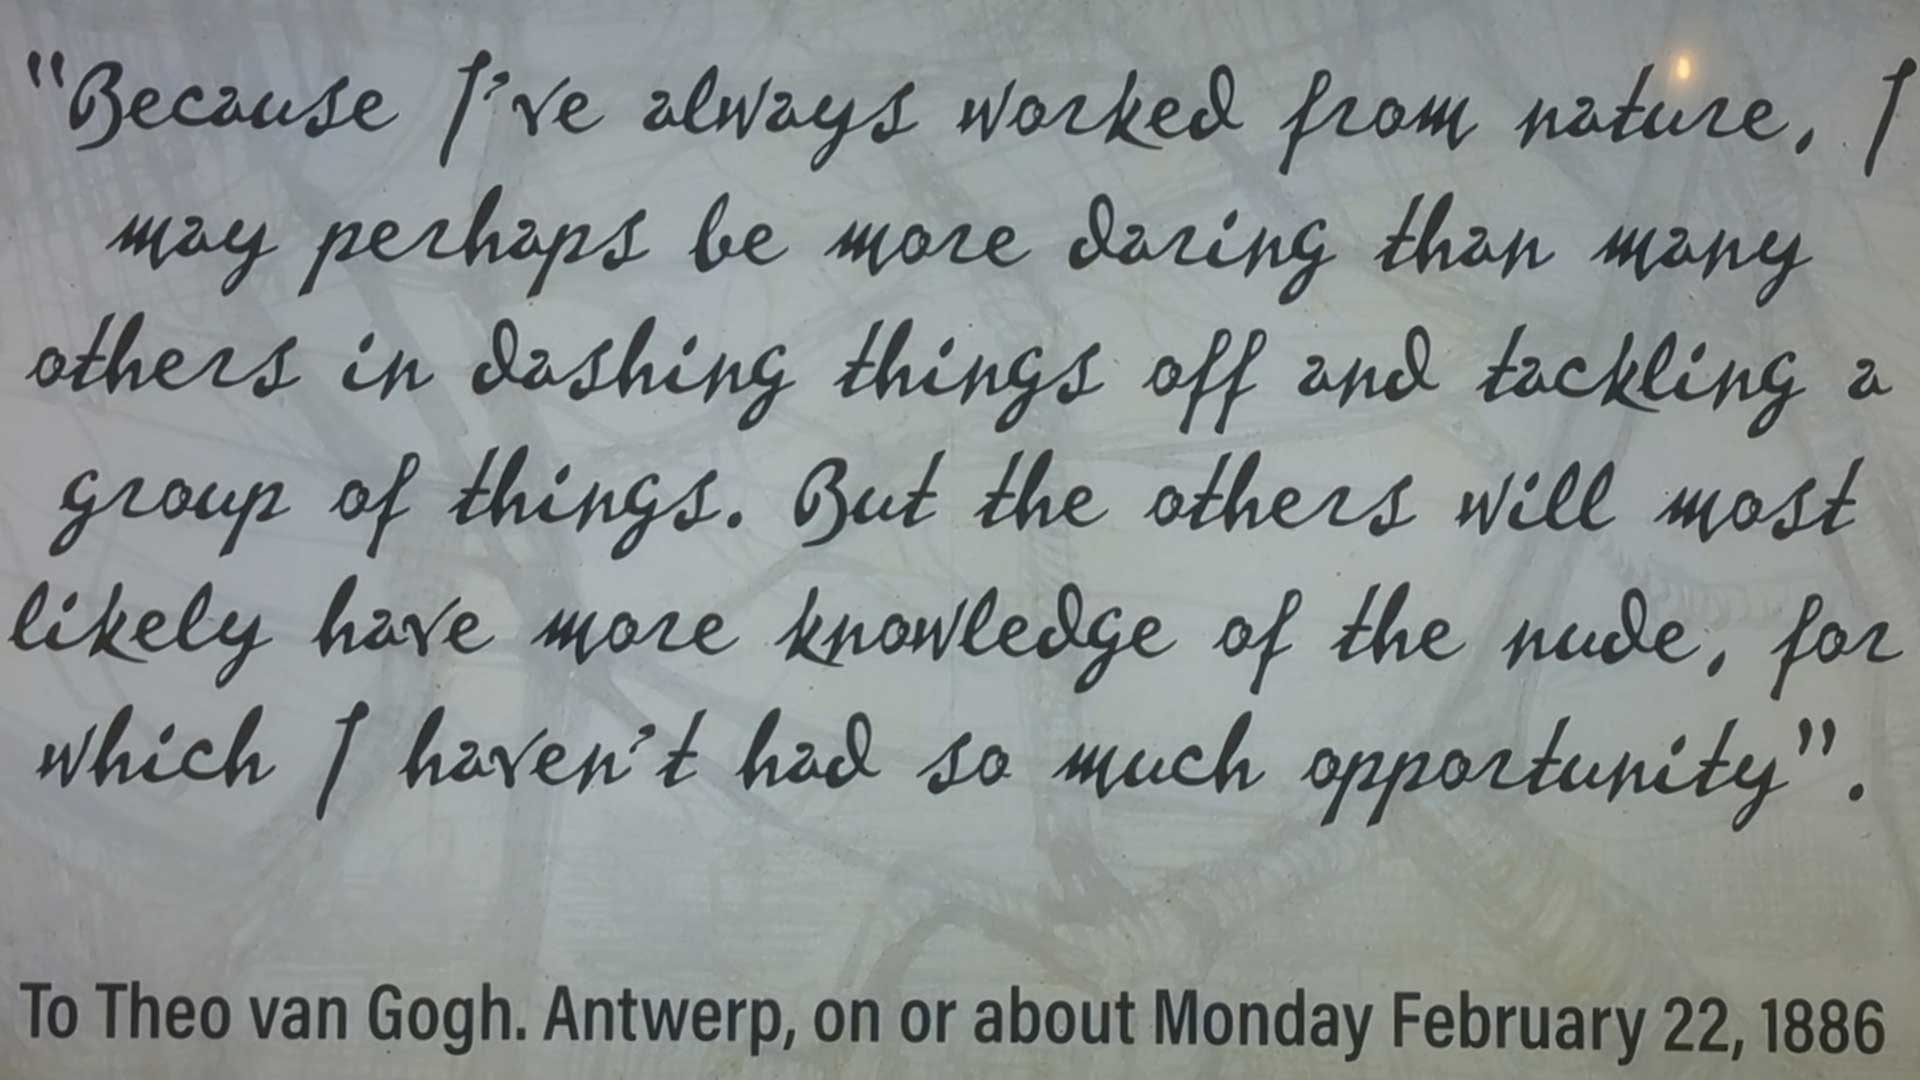 "Because I've always worked from nature, I
may perhaps be more daring than many
others in dashing things off and tackling a
group of things. But the others will most
likely have more knowledge of the nude, for
which I haven't had so much opportunity".
To Theo van Gogh. Antwerp, on or about Monday February 22, 1886